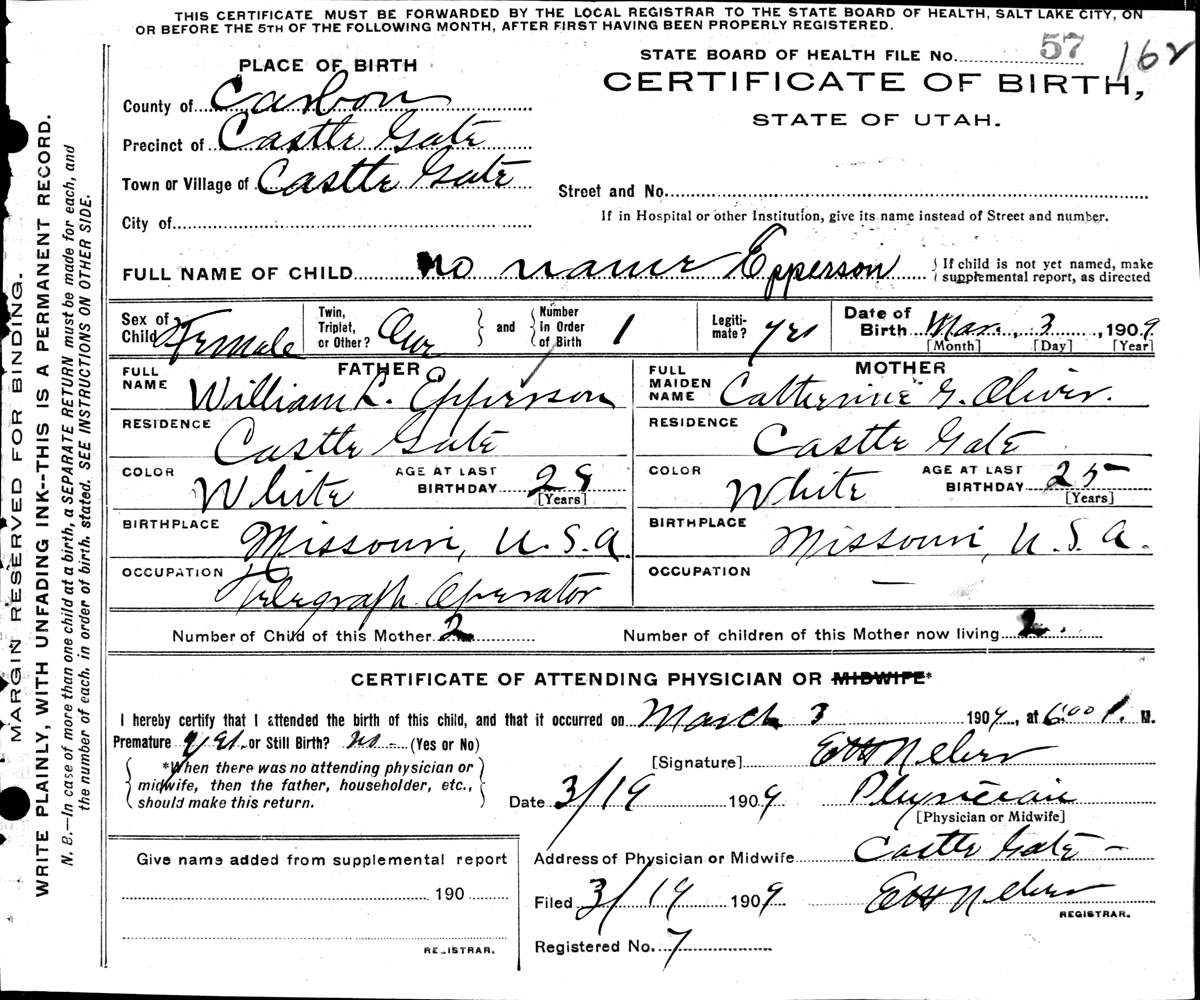 THIS CERTIFICATE MUST BE FORWARDED BY THE LOCAL REGISTRAR TO THE STATE BOARD OF HEALTH, SALT LAKE CITY, ON
OR BEFORE THE 5TH OF THE FOLLOWING MONTH, AFTER FIRST HAVING BEEN PROPERLY REGISTERED.
STATE BOARD OF HEALTH FILE No. 57 162
PLACE OF BIRTH
CERTIFICATE OF BIRTH,
STATE OF UTAH.
County of Carbon
Precinct of Castle Gate
Town or Village of Castle Gate
Street and No.
City of
If in Hospital or other Institution, give its name instead of Street and number.
FULL NAME OF CHILD no name Epperson
If child is not yet named, make
supplemental report, as directed
Sex of Child Female
Twin, Triplet, or Other? One
and Number in Order of Birth 1
Legitimate? yes
Date of Birth Mar. 3, 1909
[Month] [Day] [Year]
FATHER
FULL NAME William L. Epperson
RESIDENCE Castle Gate
COLOR White AGE AT LAST BIRTHDAY 28
[Years]
BIRTHPLACE Missouri, U.S.A.
OCCUPATION Telegraph Operator
MOTHER
FULL MAIDEN NAME Catherine G. Oliver.
RESIDENCE Castle Gate
COLOR White AGE AT LAST BIRTHDAY 25
[Years]
BIRTHPLACE Missouri, U.S.A.
OCCUPATION —
Number of Child of this Mother 2 Number of children of this Mother now living 2.
CERTIFICATE OF ATTENDING PHYSICIAN OR MIDWIFE*
I hereby certify that I attended the birth of this child, and that it occurred on March 3 1909, at 6:00 P. M.
Premature or Still Birth? no - (Yes or No)
*When there was no attending physician or
midwife, then the father, householder, etc.,
should make this return.
[Signature]
Date 3/19 1909 Physician
[Physician or Midwife]
Give name added from supplemental report
190
REGISTRAR.
Address of Physician or Midwife Castle Gate -
Filed 3/19 1909
REGISTRAR.
Registered No. 7
MARGIN RESERVED FOR BINDING.
WRITE PLAINLY, WITH UNFADING INK--THIS IS A PERMANENT RECORD.
N. B.—In case of more than one child at a birth, a SEPARATE RETURN must be made for each, and
the number of each, in order of birth, stated. SEE INSTRUCTIONS ON OTHER SIDE.